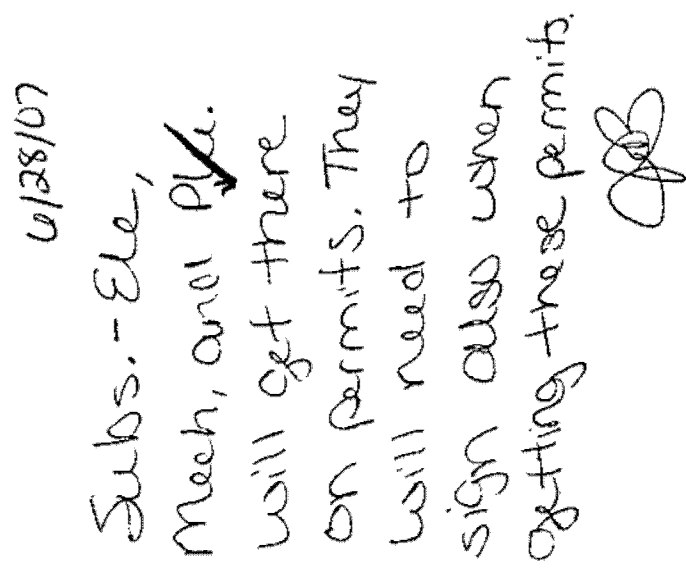 6/28/07
Subs. - Ele,
Mech, and Plu.
will get there
on permits. They
will need to
sign also when
getting these permits.